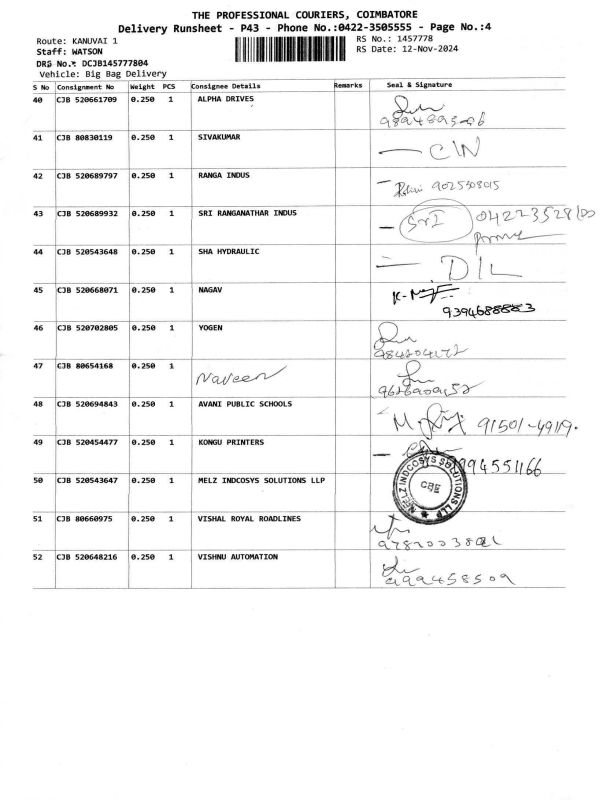 THE PROFESSIONAL COURIERS, COIMBATORE
Delivery Runsheet - P43 - Phone No.:0422-3505555 - Page No.:4
Route: KANUVAI 1
RS No.: 1457778
Staff: WATSON
RS Date: 12-Nov-2024
DRS No.: DCJB145777804
Vehicle: Big Bag Delivery
S No Consignment No Weight PCS Consignee Details Remarks Seal & Signature
40 CJB 520661709 0.250 1 ALPHA DRIVES
41 CJB 80830119 0.250 1 SIVAKUMAR
CIN
42 CJB 520689797 0.250 1 RANGA INDUS
9025308015
43 CJB 520689932 0.250 1 SRI RANGANATHAR INDUS
SrI 04223528100
44 CJB 520543648 0.250 1 SHA HYDRAULIC
DIL
45 CJB 520668071 0.250 1 NAGAV
46 CJB 520702805 0.250 1 YOGEN
47 CJB 80654168 0.250 1 Naveen
48 CJB 520694843 0.250 1 AVANI PUBLIC SCHOOLS
91501-49119.
49 CJB 520454477 0.250 1 KONGU PRINTERS
994551166
50 CJB 520543647 0.250 1 MELZ INDCOSYS SOLUTIONS LLP
MELZ INDCOSYS SOLUTIONS LLP
CBE
51 CJB 80660975 0.250 1 VISHAL ROYAL ROADLINES
52 CJB 520648216 0.250 1 VISHNU AUTOMATION